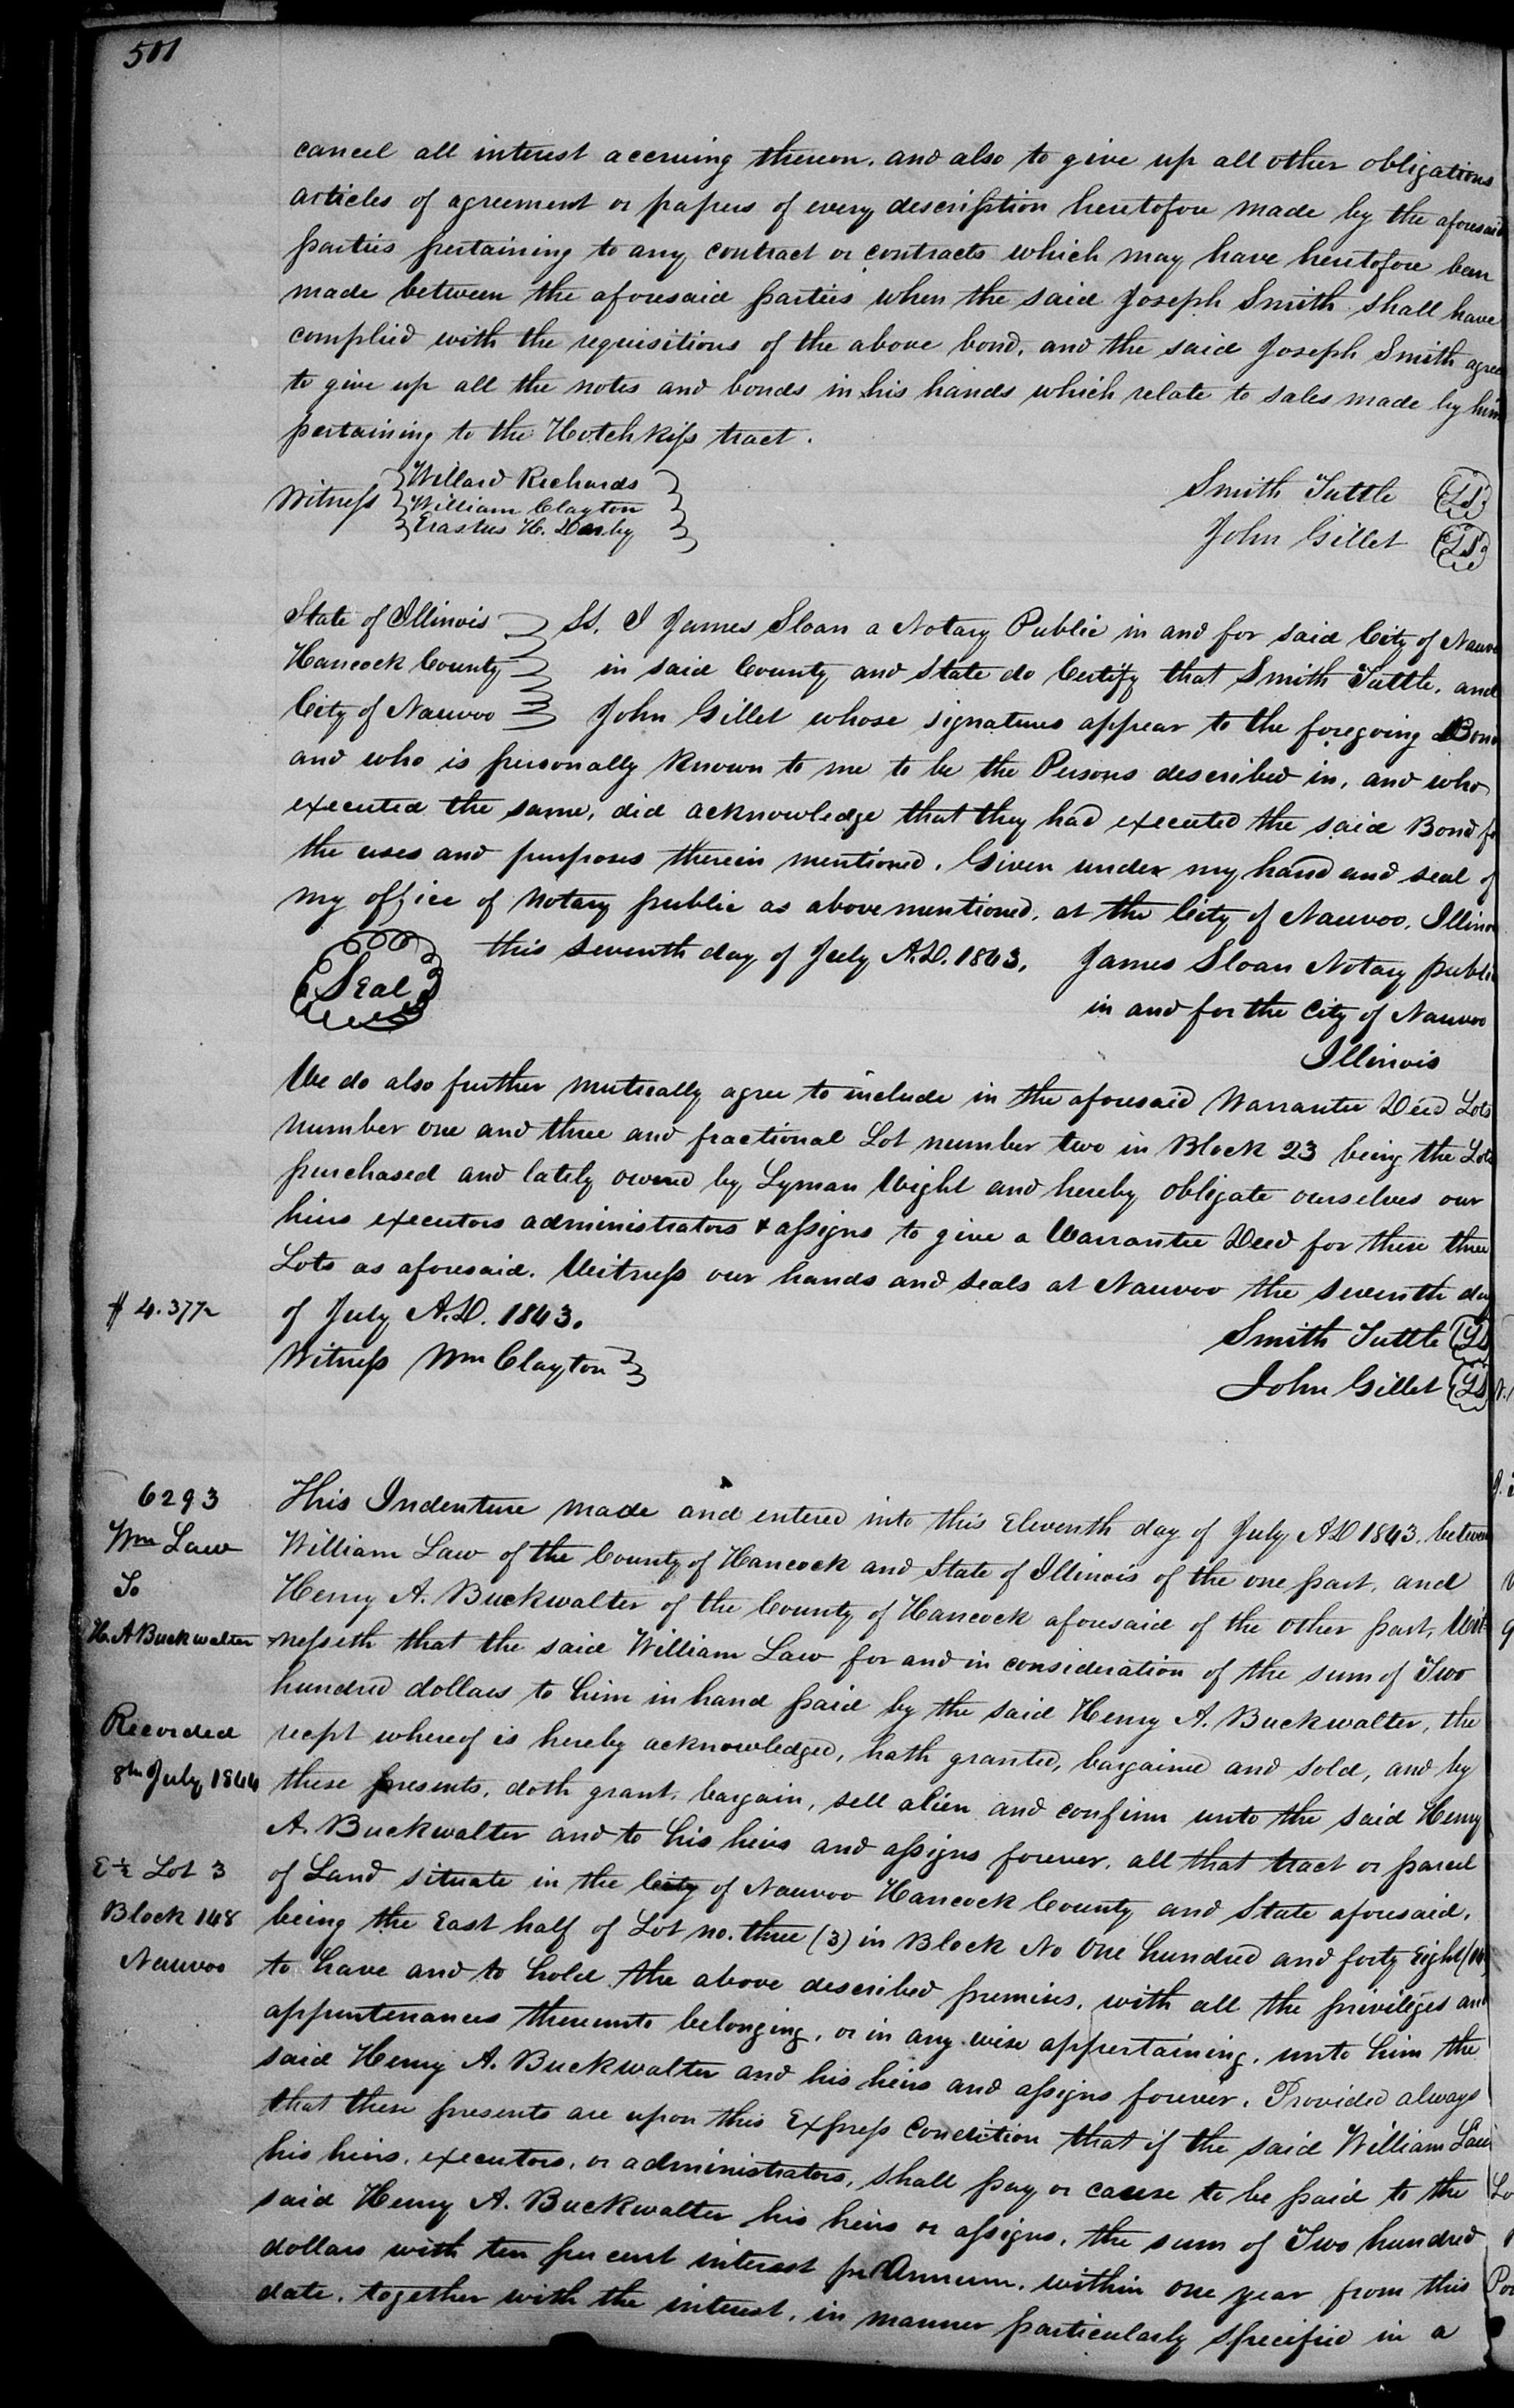 501
cancel all interest accruing thereon. and also to give up all other obligations
articles of agreement or papers of every description heretofore made by the aforesaid
parties pertaining to any contract or contracts which may have heretofore been
made between the aforesaid parties when the said Joseph Smith shall have
complied with the requisitions of the above bond, and the said Joseph Smith agrees
to give up all the notes and bonds in his hands which relate to sales made by him
pertaining to the Hotchkiss tract.
Witness Willard Richards
William Clayton
Erastus H. Derby
Smith Tuttle LS
John Gillet LS
State of Illinois Ss. I James Sloan a Notary Public in and for said City of Nauvoo
Hancock County in said County and State do Certify that Smith Tuttle, and
City of Nauvoo John Gillet whose signatures appear to the foregoing Bond
and who is personally known to me to be the Persons described in, and who
executed the same, did acknowledge that they had executed the said Bond for
the uses and purposes therein mentioned. Given under my hand and seal of
my office of Notary public as above mentioned, at the City of Nauvoo, Illinois
Seal this seventh day of July A.D. 1843. James Sloan Notary public
in and for the City of Nauvoo
Illinois
We do also further mutually agree to include in the aforesaid Warrantee Deed Lots
number one and three and fractional Lot number two in Block 23 being the Lots
purchased and lately owned by Lyman Wight and hereby obligate ourselves our
heirs executors administrators & assigns to give a Warrantee Deed for these three
Lots as aforesaid. Witness our hands and seals at Nauvoo the seventh day
$ 4.37½ of July A.D. 1843.
Smith Tuttle LS
Witness Wm Clayton
John Gillet LS
6293 This Indenture made and entered into this Eleventh day of July AD 1843. between
Wm Law William Law of the County of Hancock and State of Illinois of the one part, and
To Henry A. Buckwalter of the County of Hancock aforesaid of the other part, Wit-
H. A Buckwalter nesseth that the said William Law for and in consideration of the sum of Two
hundred dollars to him in hand paid by the said Henry A. Buckwalter, the
Recorded recpt whereof is hereby acknowledged, hath granted, bargained and sold, and by
8th July 1844 these presents, doth grant, bargain, sell alien and confirm unto the said Henry
A. Buckwalter and to his heirs and assigns forever, all that tract or parcel
E ½ Lot 3 of Land situate in the City of Nauvoo Hancock County and State aforesaid,
Block 148 being the East half of Lot no. three (3) in Block No One hundred and forty Eight (148)
Nauvoo to have and to hold the above described premises, with all the privileges and
appurtenances thereunto belonging, or in any wise appertaining, unto him the
said Henry A. Buckwalter and his heirs and assigns forever. Provided always
that these presents are upon this Express Condition that if the said William Law
his heirs, executors, or administrators, shall pay or cause to be paid to the
said Henry A. Buckwalter his heirs or assigns, the sum of Two hundred
dollars with ten per cent interest pr Annum. within one year from this
date, together with the interest, in manner particularly specified in a